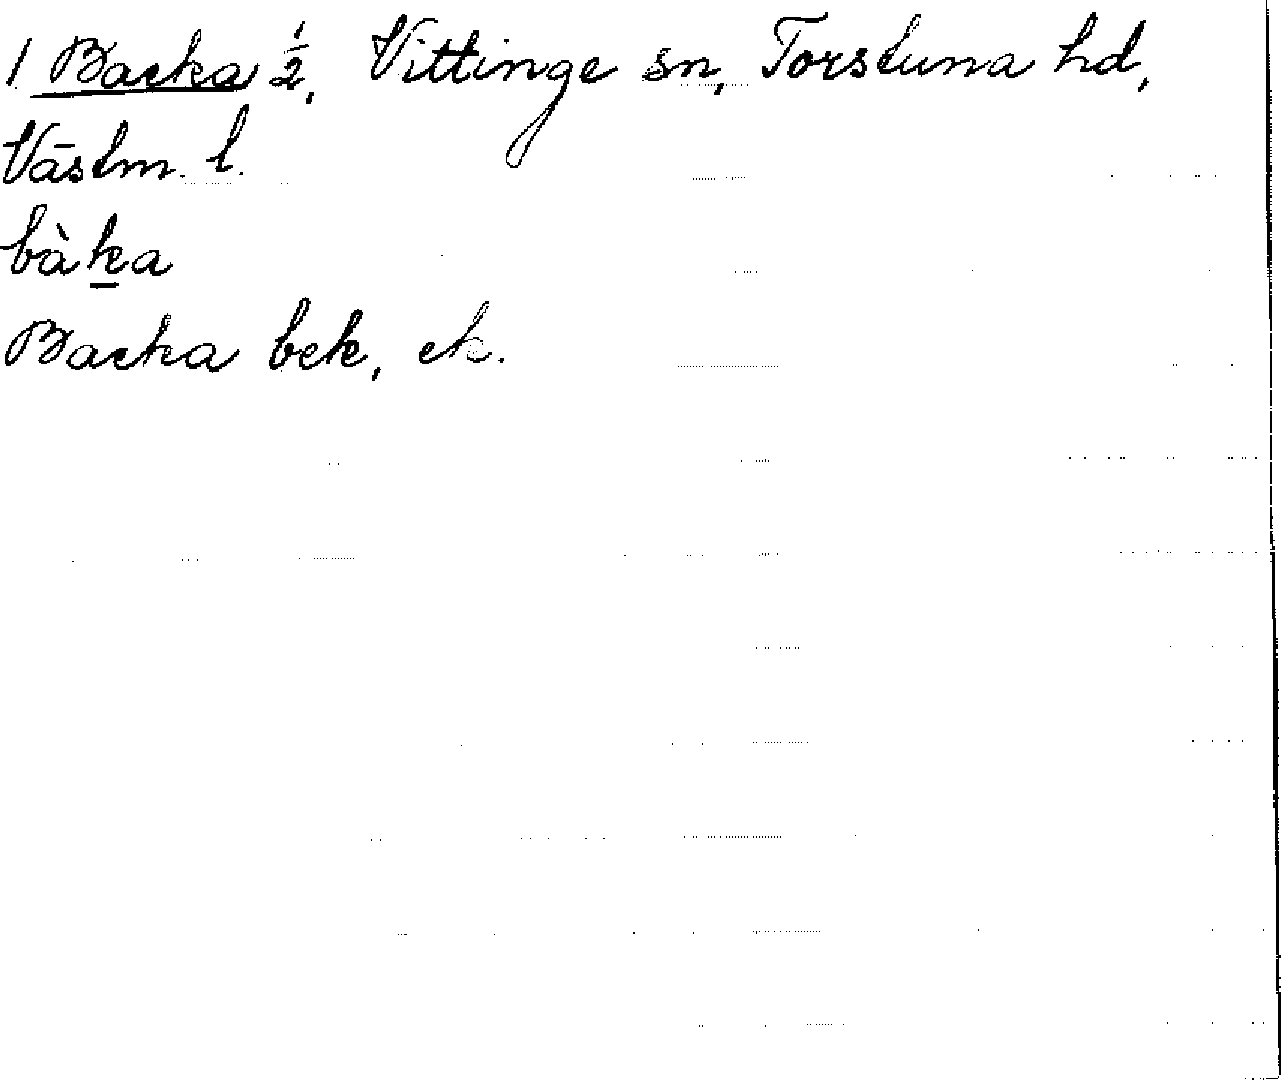 1 Backa ½, Vittinge sn, Torstuna hd,
Västm. l.
bàka
Backa bek, ek.